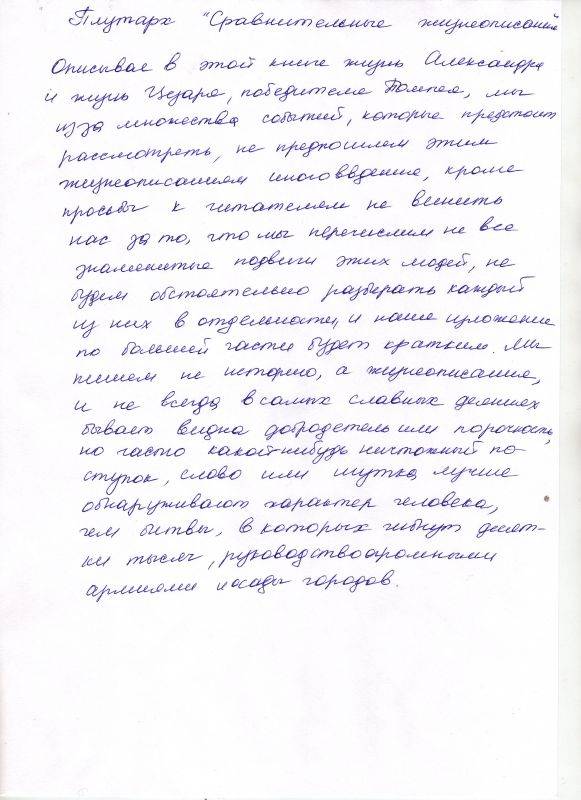 Плутарх "Сравнительные жизнеописания"
Описывая в этой книге жизнь Александра
и жизнь Цезаря, победителя Помпея, мы
из за множества событий, которые предстоит
рассмотреть, не предпошлем этим
жизнеописаниям иного введения, кроме
просьбы к читателям не винить
нас за то, что мы перечислим не все
знаменитые подвиги этих людей, не
будем обстоятельно разбирать каждый
из них в отдельности, и наше изложение
по большей части будет кратким. Мы
пишем не историю, а жизнеописание,
и не всегда в самых славных деяниях
бывает видна добродетель или порочность,
но часто какой-нибудь ничтожный по-
ступок, слово или шутка лучше
обнаруживают характер человека,
чем битвы, в которых гибнут десят-
ки тысяч, руководство огромными
армиями и осады городов.